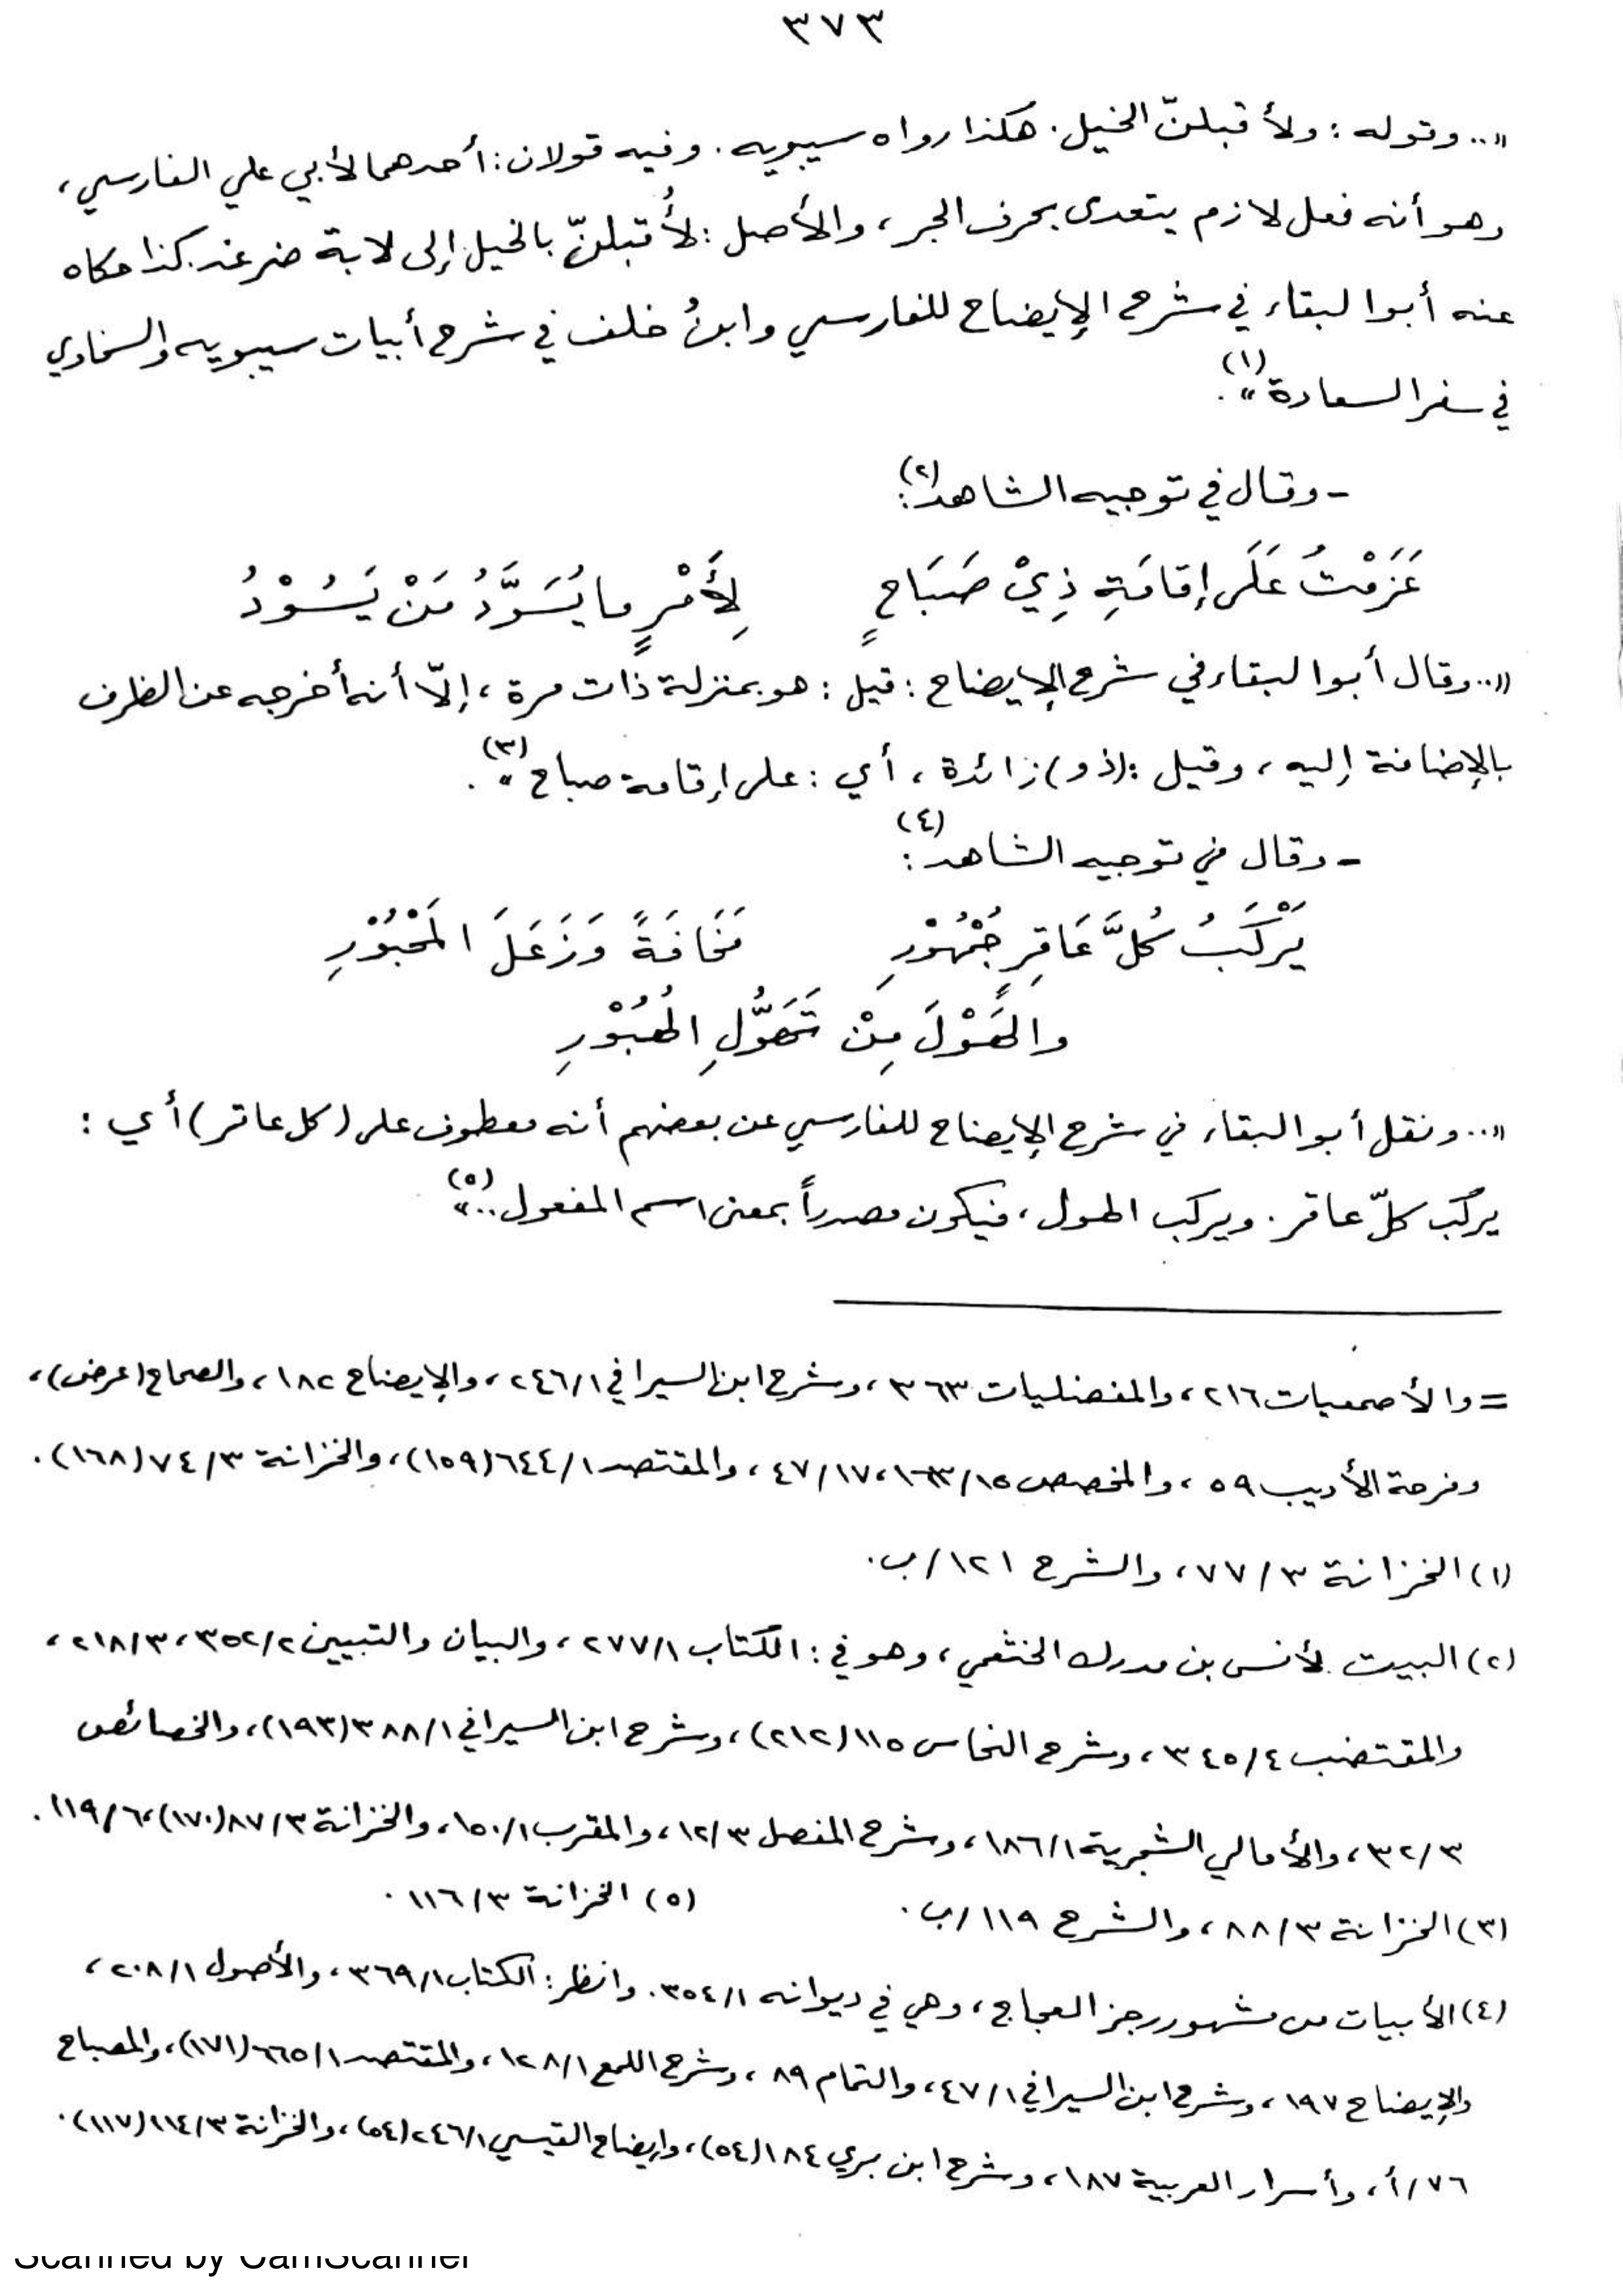 ٣٧٣
«.. وقوله : ولأقبلنّ الخيل . هكذا رواه سيبويه . وفيه قولان : أحدهما لأبي علي الفارسي ،
وهو أنه فعل لازم يتعدى بحرف الجر ، والأصل : لأُقبلنّ بالخيل إلى لابة ضرغد . كذا حكاه
عنه أبو البقاء في شرح الإيضاح للفارسي وابنُ خلف في شرح أبيات سيبويه والسخاوي
في سفر السعادة »(١).
- وقال في توجيه الشاهد(٢):
عَزَمْتُ عَلَى إقامَةِ ذِيْ صَبَاحٍ لِأَمْرٍ ما يُسَوَّدُ مَنْ يَسُوْدُ
«.. وقال أبو البقاء في شرح الإيضاح : قيل : هو بمنزلة ذات مرة ، إلّا أنه أخرجه عن الظرف
بالإضافة إليه ، وقيل : (ذو) زائدة ، أي : على إقامة صباح »(٣).
- وقال في توجيه الشاهد(٤) :
يَرْكَبُ كُلَّ عَاقِرٍ جُمْهُوْرِ مَخَافَةً وَزَعَلَ المَحْبُوْرِ
والهَوْلَ مِنْ تَهَوُّلِ الهُبُوْرِ
«.. ونقل أبو البقاء في شرح الإيضاح للفارسي عن بعضهم أنه معطوف على (كل عاقر) أي :
يركب كلّ عاقر . ويركب الهول ، فيكون مصدراً بمعنى اسم المفعول .. »(٥)
= والأصمعيات ٢١٦ ، والمفضليات ٣٦٣ ، وشرح ابن السيرافي ٢٤٦/١ ، والإيضاح ١٨٢ ، والصحاح (عرض) ،
وفرحة الأديب ٥٩ ، والمخصص ١٦٣/١٥ ، ٤٧/١٧ ، والمقتصد ٦٤٤/١ (١٥٩) ، والخزانة ٧٤/٣ (١٦٨) .
(١) الخزانة ٧٧/٣ ، والشرح ١٢١/ب .
(٢) البيت لأنس بن مدرك الخثعمي ، وهو في : الكتاب ٢٧٧/١ ، والبيان والتبيين ٣٥٢/٢ ، ٢١٨/٣ ،
والمقتضب ٣٤٥/٤ ، وشرح النحاس ١١٥ (٢١٢) ، وشرح ابن السيرافي ٣٨٨/١ (١٩٣) ، والخصائص
٣٢/٣ ، والأمالي الشجرية ١٨٦/١ ، وشرح المفصل ١٢/٣ ، والمقرب ١٥٠/١ ، والخزانة ٨٧/٣ (١٧٠) ، ١١٩/٦ .
(٣) الخزانة ٨٨/٣ ، والشرح ١١٩/ب . (٥) الخزانة ١١٦/٣ .
(٤) الأبيات من مشهور رجز العجاج ، وهي في ديوانه ٣٥٤/١ . وانظر : الكتاب ٣٦٩/١ ، والأصول ٢٠٨/١ ،
والإيضاح ١٩٧ ، وشرح ابن السيرافي ٤٧/١ ، والتمام ٨٩ ، وشرح اللمع ١٢٨/١ ، والمقتصد ٦٦٥/١ (١٧١) ، والمصباح
٧٦/أ ، وأسرار العربية ١٨٧ ، وشرح ابن بري ١٨٤ (٥٤) ، وإيضاح القيسي ٢٤٦/١ (٥٤) ، والخزانة ١١٤/٣ (١١٧) .
Scanned by CamScanner